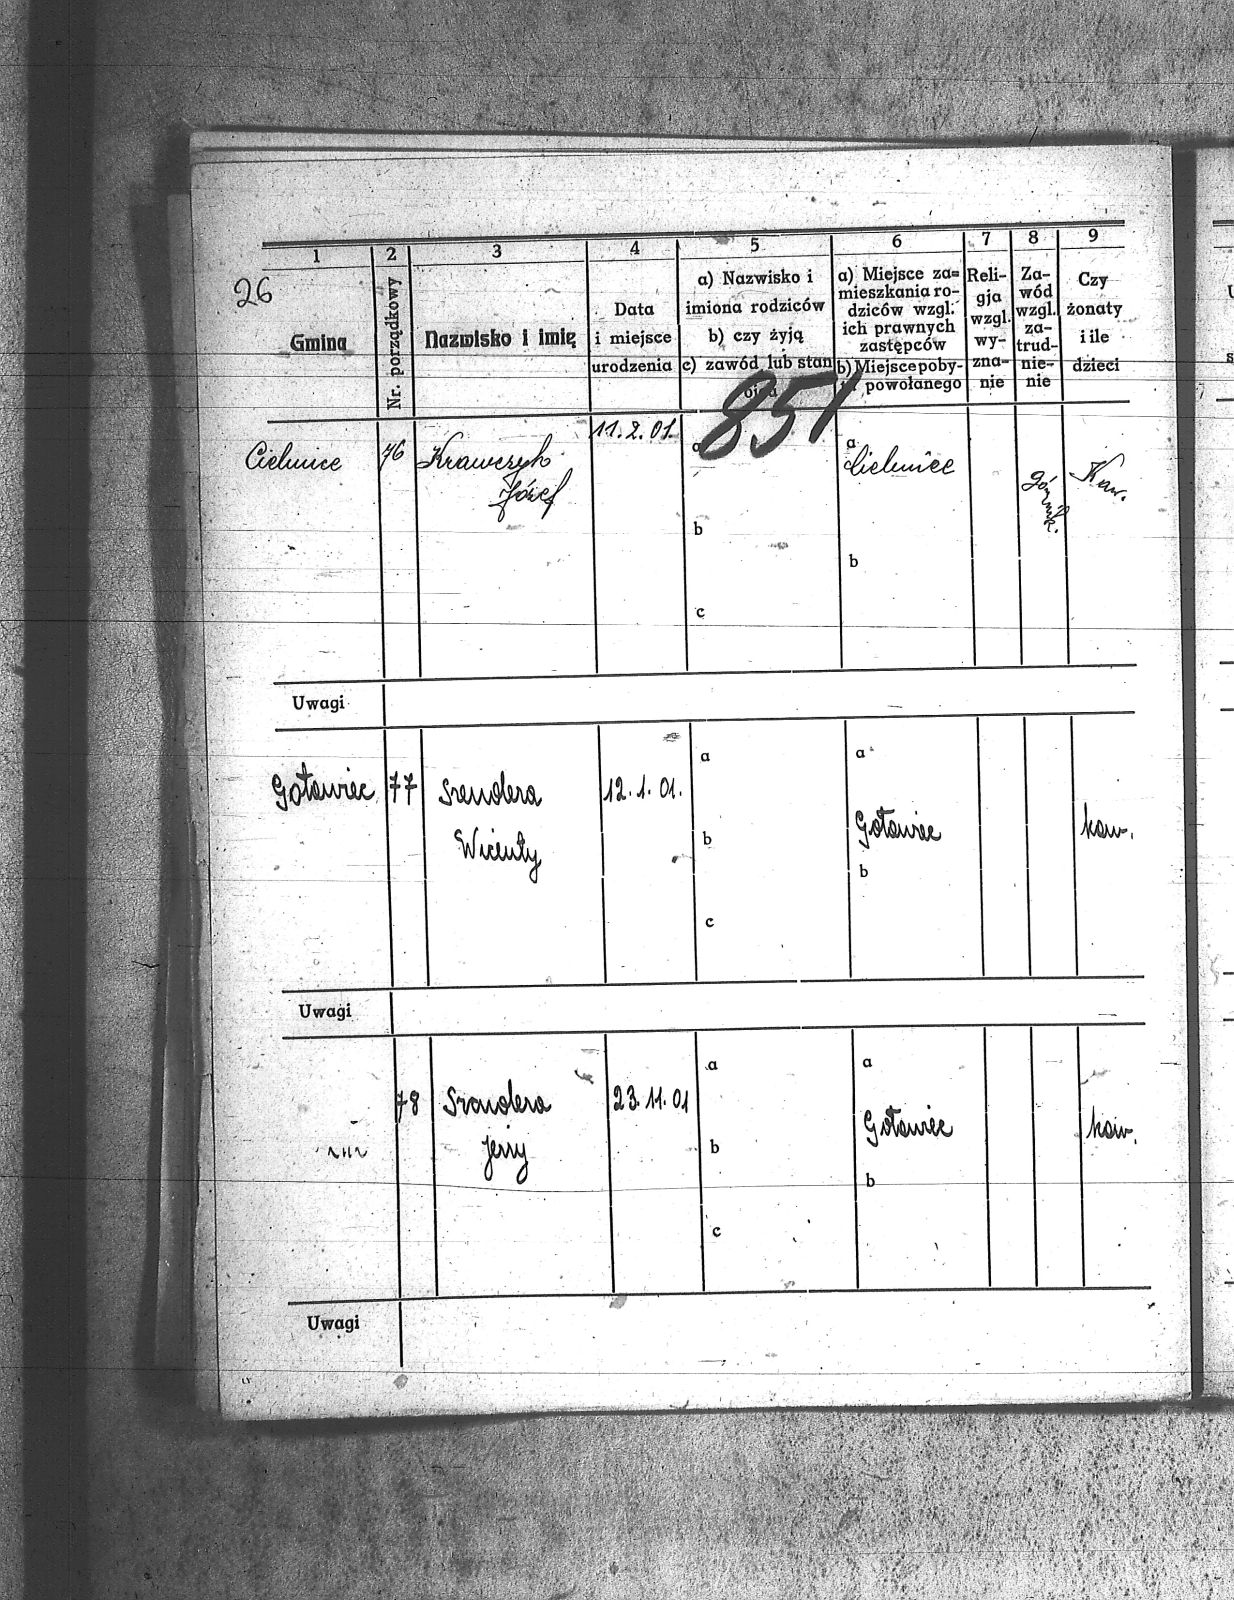 26
1 2 3 4 5 6 7 8 9
Gmina
Nr. porządkowy
Nazwisko i imię
Data
i miejsce
urodzenia
a) Nazwisko i
imiona rodziców
b) czy żyją
c) zawód lub stan
ojca
a) Miejsce za=
mieszkania ro-
dziców wzgl.
ich prawnych
zastępców
b) Miejsce poby-
powołanego
Reli-
gja
wzgl.
wy-
zna-
nie
Za-
wód
wzgl.
za-
trud-
nie-
nie
Czy
żonaty
i ile
dzieci
851
Cielmice 76 Krawczyk
Józef
11.2.01.
a
b
c
a
Cielmice
b
górnik.
Kaw.
Uwagi
Gotawiec 77 Szendera
Wicenty
12.1.01.
a
b
c
a
Gotawiec
b
kaw.
Uwagi
78 Szendera
Jerzy
23.11.01
a
b
c
a
Gotawiec
b
kaw.
Uwagi